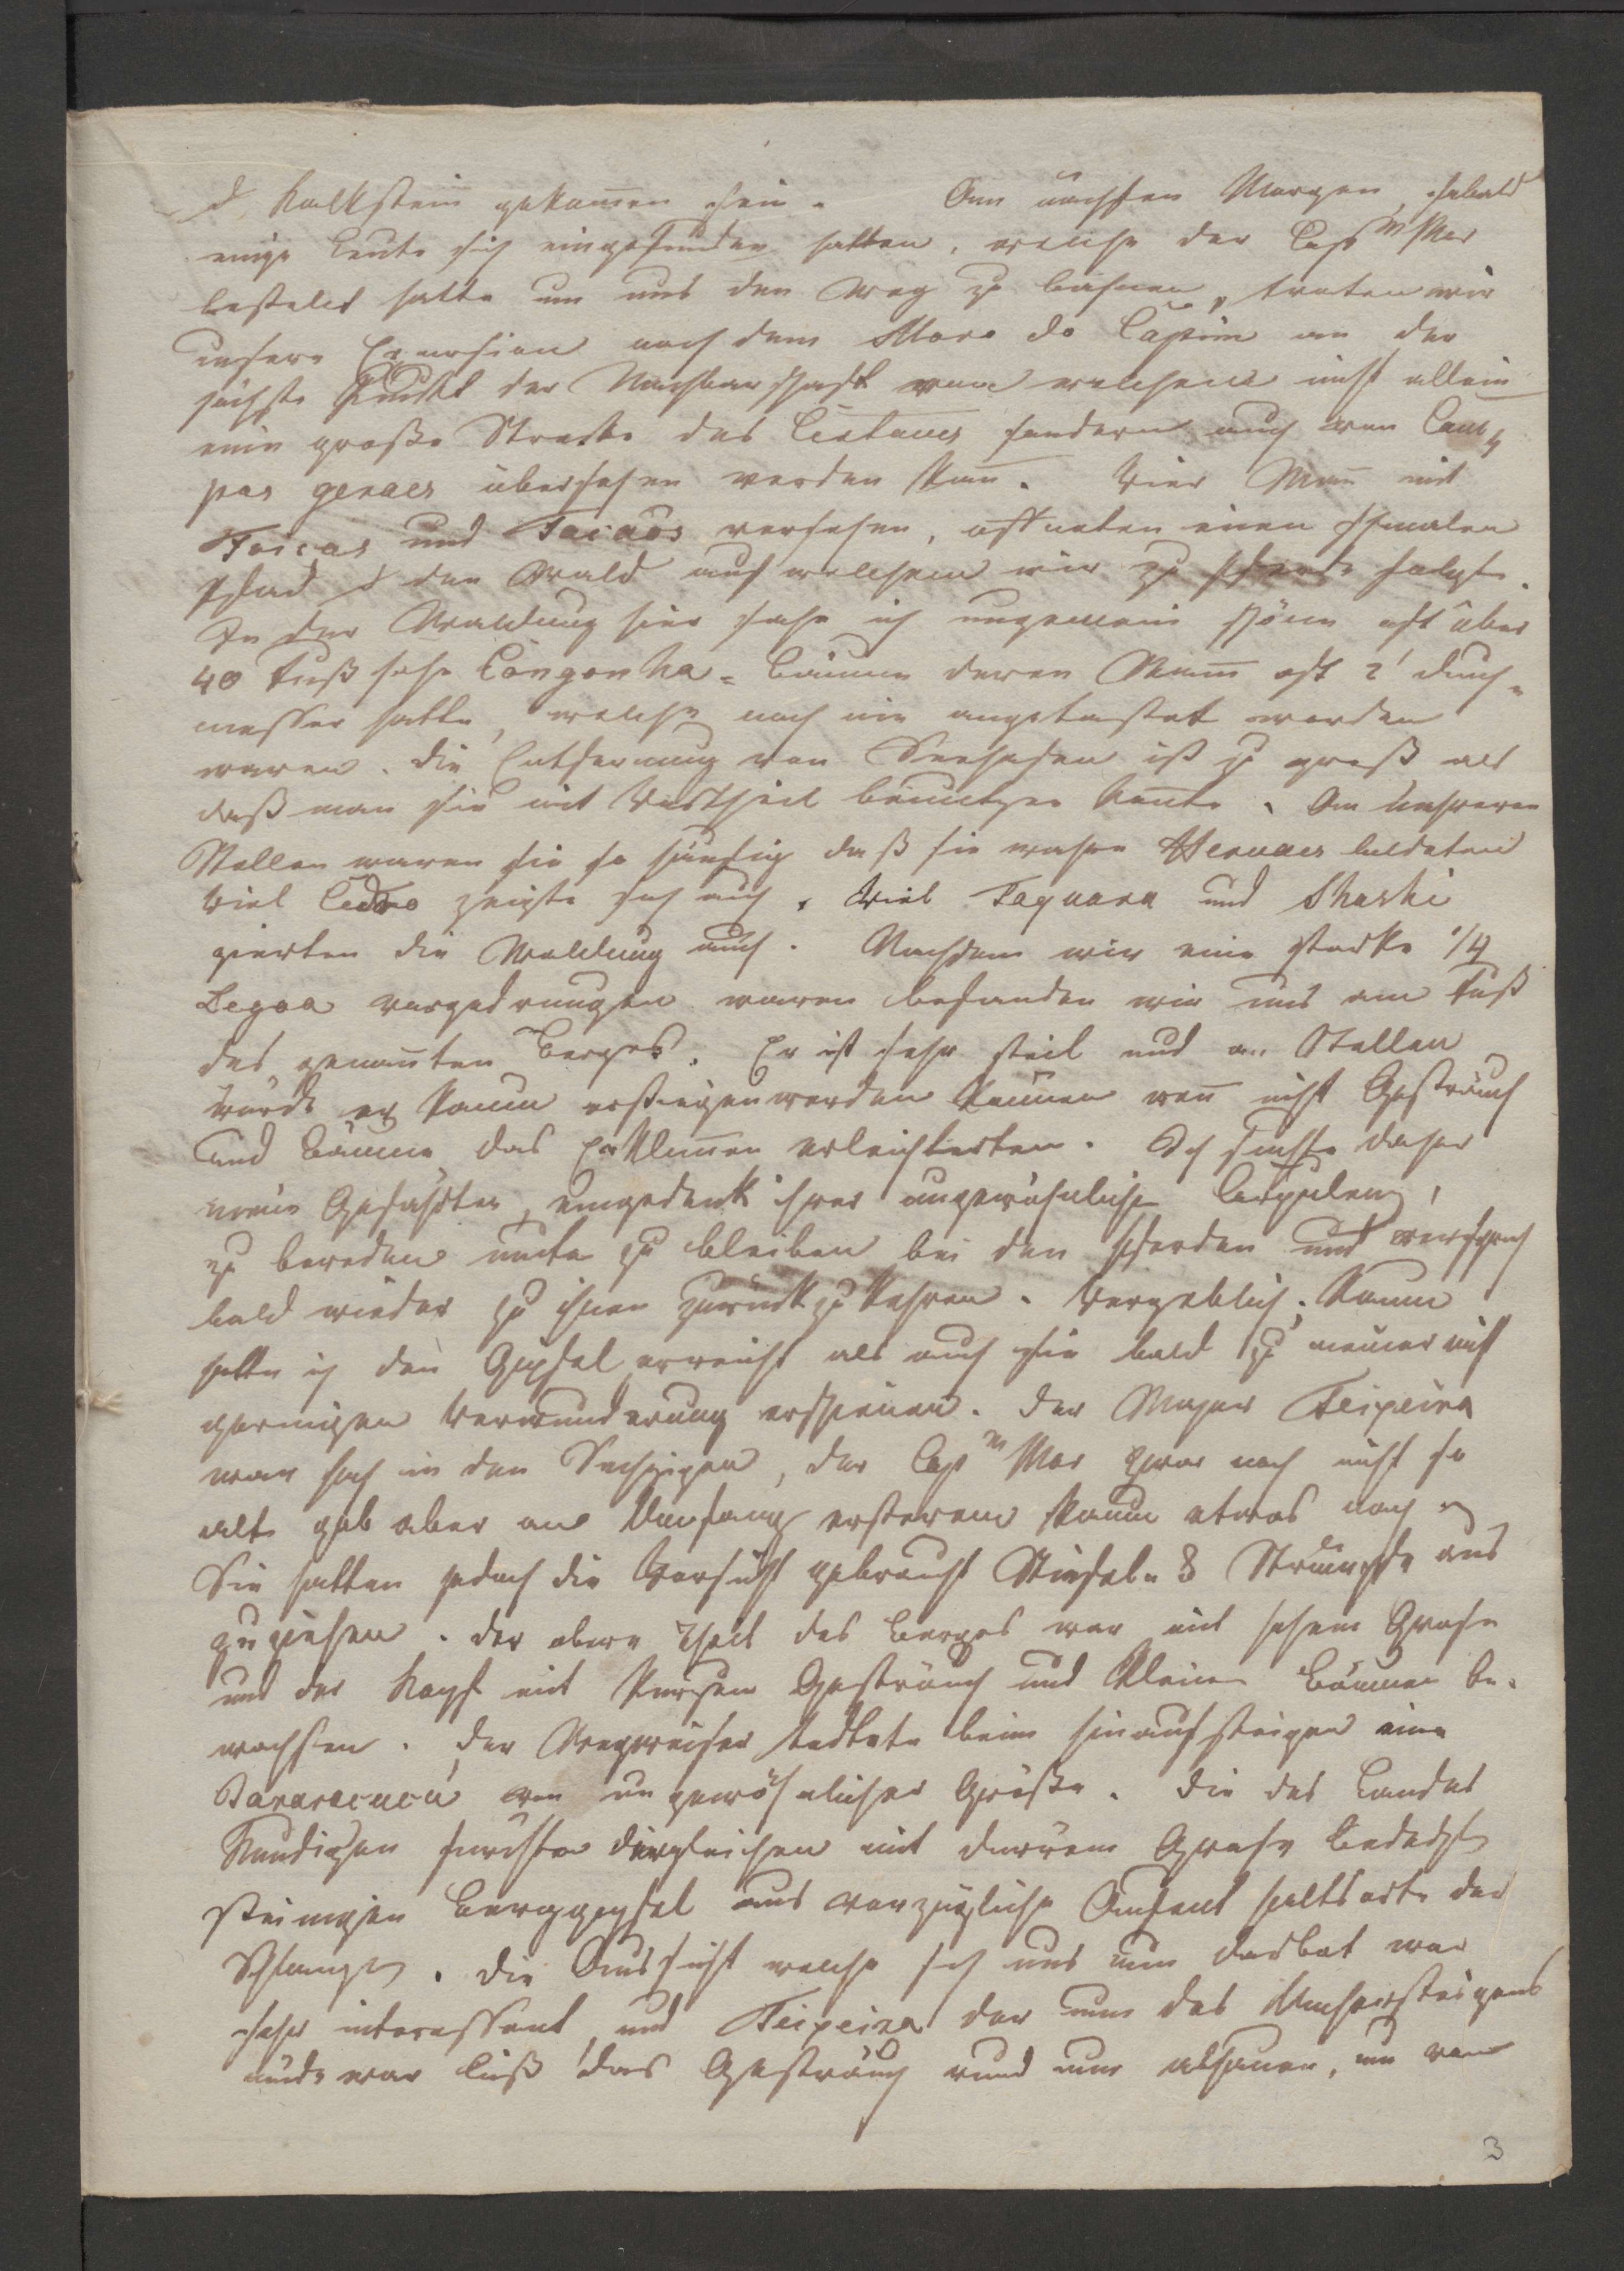 d. Kalkstein gekom̅en sein. Am nächsten Morgen, sobald
einige Leute sich eingefunden hatten, welche der Cap^m Mor
bestellt hatte um uns den Weg zu bahnen, traten wir
unsere Excursion nach dem Moro do Capim an der
höchste Punkt der Nachbarschaft von welchem nicht allein
eine große Strecke des Certaues sondern auch von Cam-
pos geraes übersehen werden kan̅. Vier Man̅ mit
Foicas und Facaos versehen, öffneten einen schmalen
Pfad d den Wald auf welchem wir zu Pferde folgte.
In der Waldung hier sahe ich ungemein schöne oft über
40 Fuß hohe Congonha-Bäume deren Stam̅ oft 2' durch-
messer hatte, welche noch nie angetastet worden
waren. Die Entfernung von Seehafen ist zu groß als
daß man sie mit Vortheil benutzen kon̅te. An mehreren
Stellen waren sie so häufig daß sie wahre Hervaes bildeten
Viel Cedro zeigte sich auch. Viel Taquara und
zierten die Waldung auch. Nachdem wir eine starke 1/4
Legoa vorgedrungen waren befanden wir uns am Fuß
des genan̅ten Berges. Er ist sehr steil und an Stellen
würde er kaum erstiegen werden können wen̅ nicht Gesträuch
und Bäume das Erklim̅en erleichterten. Ich suchte daher
meine Gefährten, eingedenk ihrer ungewöhnlichen Corpulenz,
zu bereden unten zu bleiben bei den Pferden und versprach
bald wieder zu ihnen zurückzukehren. Vergeblich; kaum
hatte ich den Gipfel erreicht als auch sie bald zu meiner nicht
geringen Verwunderung erschienen. Der Major Teixeira
war hoch in den Sechzigen, der Cap^m Mor zwar noch nicht so
alt gab aber an Umfang ersterem kaum etwas nach
Sie hatten jedoch die Vorsicht gebraucht Stiefel & Strümpfe aus
zuziehen. Der obere Theil des Berges war mit hohem Grase
und der Kopf mit kurzem Gesträuch und kleinen Bäumen be-
wachsen. Der Wegweiser tödtete beim Hinaufsteigen eine
Jararacucú von ungewöhnlicher Größe. Die des Landes
Kundigen fürchten dergleichen mit dürrem Grase bedeckte
steinigen Berggipfel als vorzügliche Aufenthaltsorte der
Schlangen. Die Aussicht welche sich uns nun darbot war
sehr interessant und Teixeira der nun des Umhersteigens
müde war ließ das Gesträuch rund um abhauen, um von
3